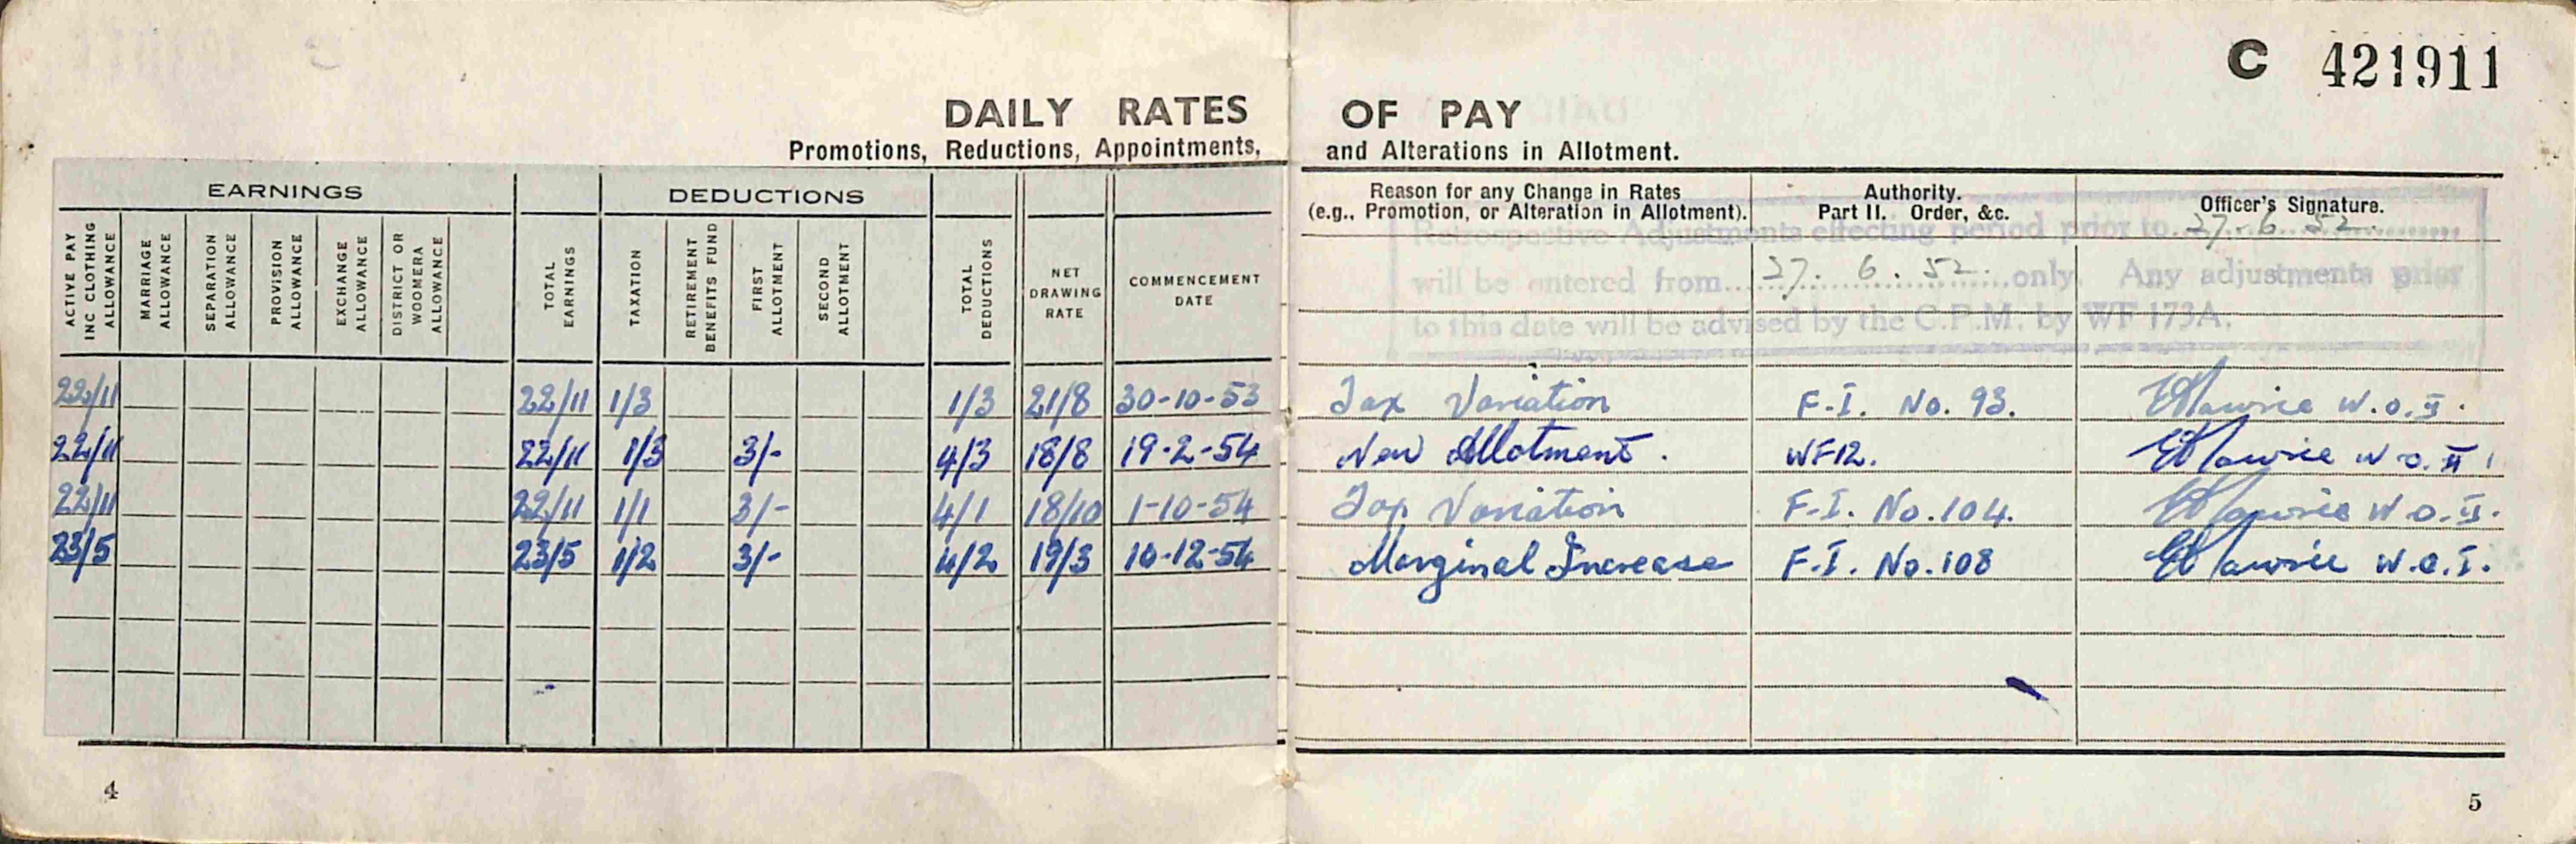 C 421911
DAILY RATES OF PAY
Promotions, Reductions, Appointments, and Alterations in Allotment.
EARNINGS
DEDUCTIONS
ACTIVE PAY INC CLOTHING ALLOWANCE
MARRIAGE ALLOWANCE
SEPARATION ALLOWANCE
PROVISION ALLOWANCE
EXCHANGE ALLOWANCE
DISTRICT OR WOOMERA ALLOWANCE
TOTAL EARNINGS
TAXATION
RETIREMENT BENEFITS FUND
FIRST ALLOTMENT
SECOND ALLOTMENT
TOTAL DEDUCTIONS
NET DRAWING RATE
COMMENCEMENT DATE
Reason for any Change in Rates
(e.g., Promotion, or Alteration in Allotment).
Authority.
Part II. Order, &c.
Officer's Signature.
Retrospective Adjustments effecting period prior to 27.6.52.
will be entered from 27.6.52. only. Any adjustments prior
to this date will be advised by the C.P.M. by WF 173A.
22/11 22/11 1/3 1/3 21/8 30-10-53 Tax Variation F.I. No. 93. W.O.II.
22/11 22/11 1/3 3/- 4/3 18/8 19-2-54 New Allotment. WF12. W.O.II
22/11 22/11 1/1 3/- 4/1 18/10 1-10-54 Tax Variation F.I. No. 104. W.O.II.
23/5 23/5 1/2 3/- 4/2 19/3 10-12-54 Marginal Increase F.I. No. 108 W.O.I.
4
5